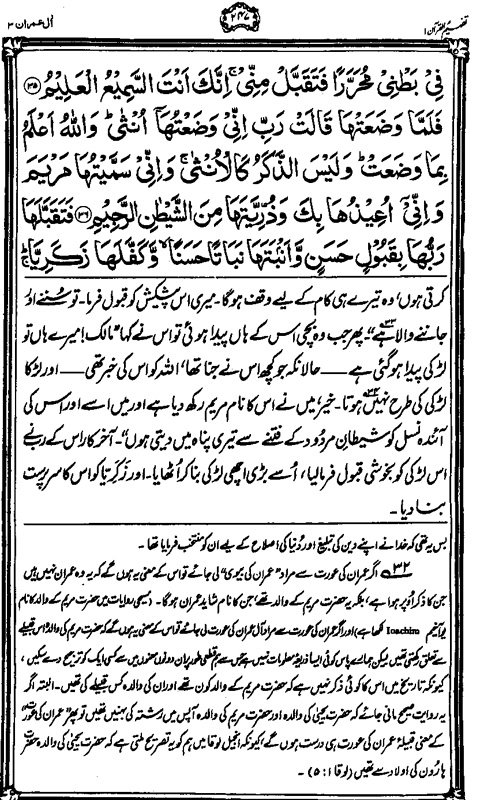 تفہیم القرآن ۱
۲۴۷
اٰل عمران ۳
فِیْ بَطْنِیْ مُحَرَّرًا فَتَقَبَّلْ مِنِّیْ ۚ اِنَّكَ اَنْتَ السَّمِیْعُ الْعَلِیْمُ ﴿۳۵﴾
فَلَمَّا وَضَعَتْهَا قَالَتْ رَبِّ اِنِّیْ وَضَعْتُهَاۤ اُنْثٰی ؕ وَاللّٰهُ اَعْلَمُ
بِمَا وَضَعَتْ ؕ وَلَیْسَ الذَّكَرُ كَالْاُنْثٰی ۚ وَاِنِّیْ سَمَّیْتُهَا مَرْیَمَ
وَاِنِّیْۤ اُعِیْذُهَا بِكَ وَذُرِّیَّتَهَا مِنَ الشَّیْطٰنِ الرَّجِیْمِ ﴿۳۶﴾ فَتَقَبَّلَهَا
رَبُّهَا بِقَبُوْلٍ حَسَنٍ وَّاَنْۢبَتَهَا نَبَاتًا حَسَنًا ۙ وَّكَفَّلَهَا زَكَرِیَّا ؕ
کرتی ہوں، وہ تیرے ہی کام کے لیے وقف ہوگا۔ میری اس پیشکش کو قبول فرما۔ تو سننے اور
جاننے والا ہے“۔ پھر جب وہ بچی اس کے ہاں پیدا ہوئی تو اس نے کہا ”مالک! میرے ہاں تو
لڑکی پیدا ہو گئی ہے — حالانکہ جو کچھ اس نے جنا تھا، اللہ کو اس کی خبر تھی — اور لڑکا
لڑکی کی طرح نہیں ہوتا۔ خیر، میں نے اس کا نام مریم رکھ دیا ہے اور میں اسے اور اس کی
آئندہ نسل کو شیطانِ مردود کے فتنے سے تیری پناہ میں دیتی ہوں“۔ آخر کار اس کے رب نے
اس لڑکی کو بخوشی قبول فرما لیا، اُسے بڑی اچھی لڑکی بنا کر اُٹھایا۔ اور زکریا کو اس کا سرپرست
بنا دیا۔
بس یہ تھی کہ خدا نے اپنے دین کی تبلیغ اور دُنیا کی اصلاح کے لیے ان کو منتخب فرمایا تھا۔
۳۲ اگر عمران کی عورت سے مراد ”عمران کی بیوی“ لی جائے تو اس کے معنی یہ ہوں گے کہ یہ وہ عمران نہیں ہیں
جن کا ذکر اُوپر ہوا ہے، بلکہ یہ حضرت مریم کے والد تھے، جن کا نام شاید عمران ہوگا۔ (مسیحی روایات میں حضرت مریم کے والد کا نام
یوآخیم Ioachim لکھا ہے) اور اگر عمران کی عورت سے مراد آل عمران کی عورت لی جائے تو اس کے معنی یہ ہوں گے کہ حضرت مریم کی والدہ اس قبیلے
سے تعلق رکھتی تھیں۔ لیکن ہمارے پاس کوئی ایسا ذریعۂ معلومات نہیں ہے جس سے ہم قطعی طور پر ان دونوں معنوں میں سے کسی ایک کو ترجیح دے سکیں،
کیونکہ تاریخ میں اس کا کوئی ذکر نہیں ہے کہ حضرت مریم کے والد کون تھے اور ان کی والدہ کس قبیلے کی تھیں۔ البتہ اگر
یہ روایت صحیح مانی جائے کہ حضرت یحییٰ کی والدہ اور حضرت مریم کی والدہ آپس میں رشتہ کی بہنیں تھیں تو پھر ”عمران کی عورت“
کے معنی قبیلۂ عمران کی عورت ہی درست ہوں گے، کیونکہ انجیل لوقا میں ہم کو یہ تصریح ملتی ہے کہ حضرت یحییٰ کی والدہ حضرت
ہارون کی اولاد سے تھیں (لوقا ۱: ۵)۔